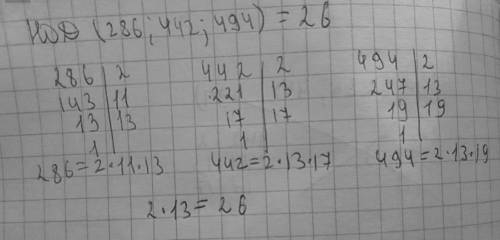 НОД (286; 442; 494) = 26
286 | 2
143 | 11
13 | 13
1
286 = 2·11·13
442 | 2
221 | 13
17 | 17
1
442 = 2·13·17
494 | 2
247 | 13
19 | 19
1
494 = 2·13·19
2·13 = 26